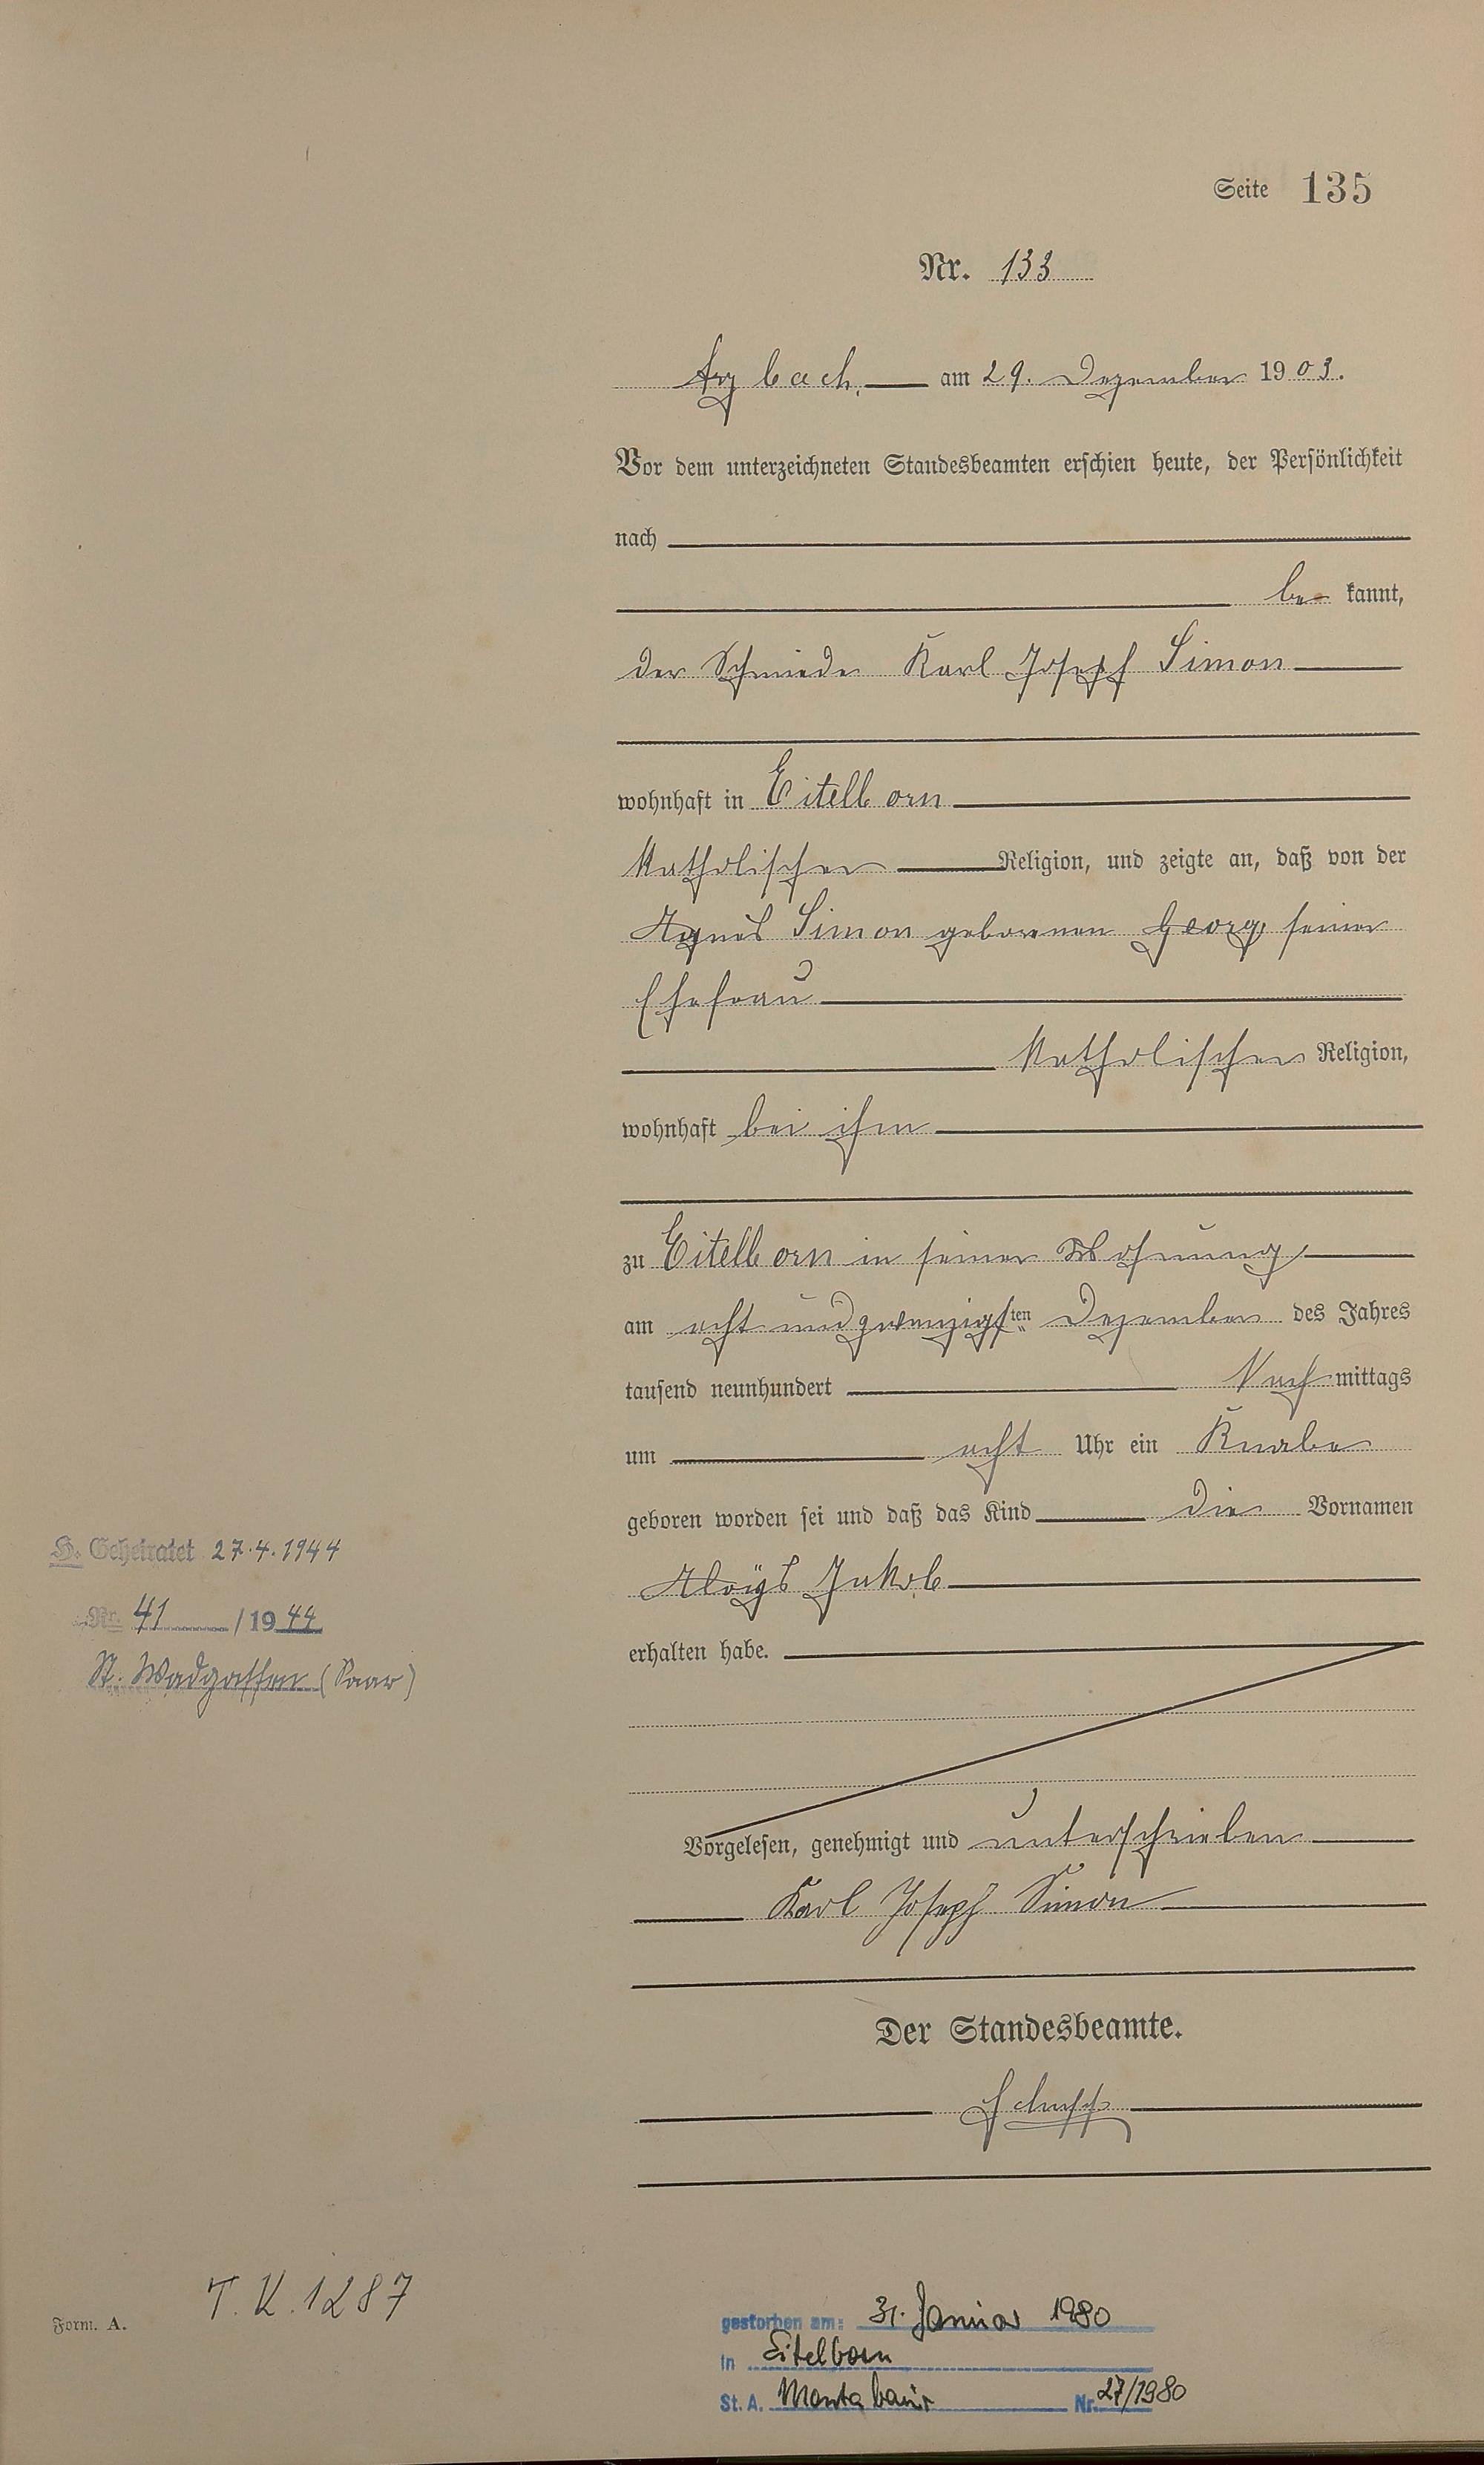 Seite 135
Nr. 133
Arzbach, am 29. Dezember 1903.
Vor dem unterzeichneten Standesbeamten erschien heute, der Persönlichkeit
nach
be kannt,
der Schmiede Karl Joseph Simon
wohnhaft in Eitelborn
katholischer Religion, und zeigte an, daß von der
Agnes Simon geborenen Georg seiner
Ehefrau
katholischer Religion,
wohnhaft bei ihm
zu Eitelborn in seiner Wohnung
am acht und zwanzigsten Dezember des Jahres
tausend neunhundert Nachmittags
um acht Uhr ein Knabe
geboren worden sei und daß das Kind die Vornamen
Aloÿs Jakob
erhalten habe.
H. Geheiratet 27.4.1944
Nr. 41 /1944
St. Wadgassen (Saar)
Vorgelesen, genehmigt und unterschrieben
Karl Joseph Simon
Der Standesbeamte.
Schupp
T. K. 1287
Form. A.
gestorben am: 31. Januar 1980
in Eitelborn
St. A. Montabaur Nr. 27/1980